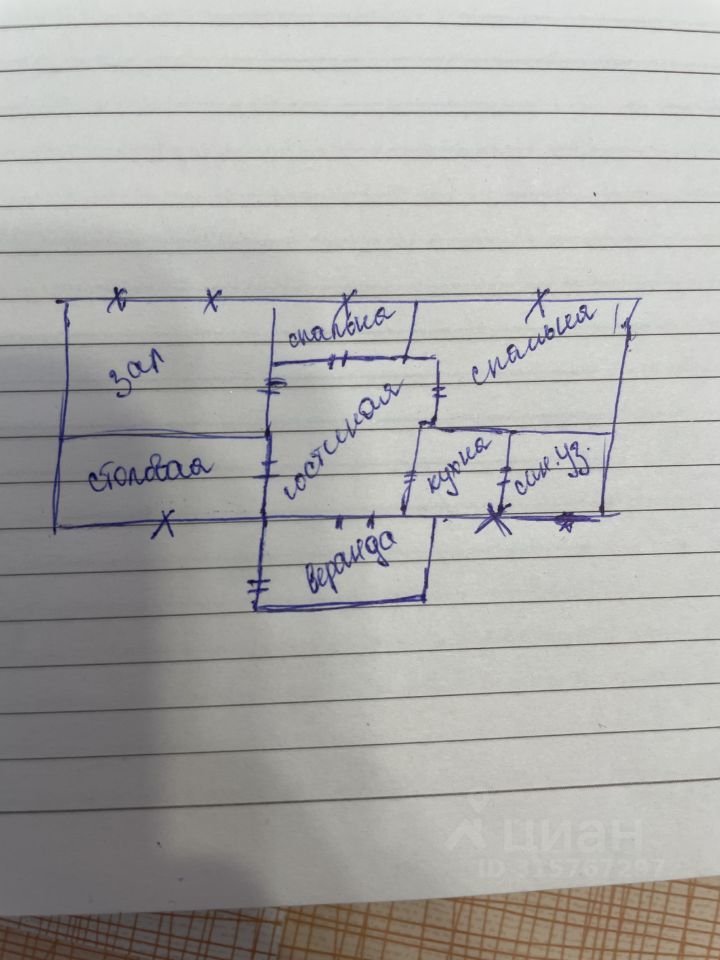 спальня
спальня
зал
гостиная
столовая
кухна
сан.уз.
веранда
ЦИАН
ID 315767287